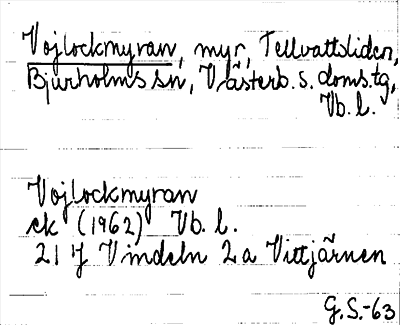 Vojlockmyran, myr, Tellvattsliden,
Bjurholms sn, Västerb. s. doms.tg,
Vb. l.
Vojlockmyran
ek (1962) Vb. l.
21 J Vindeln 2a Vittjärnen
G.S.-63